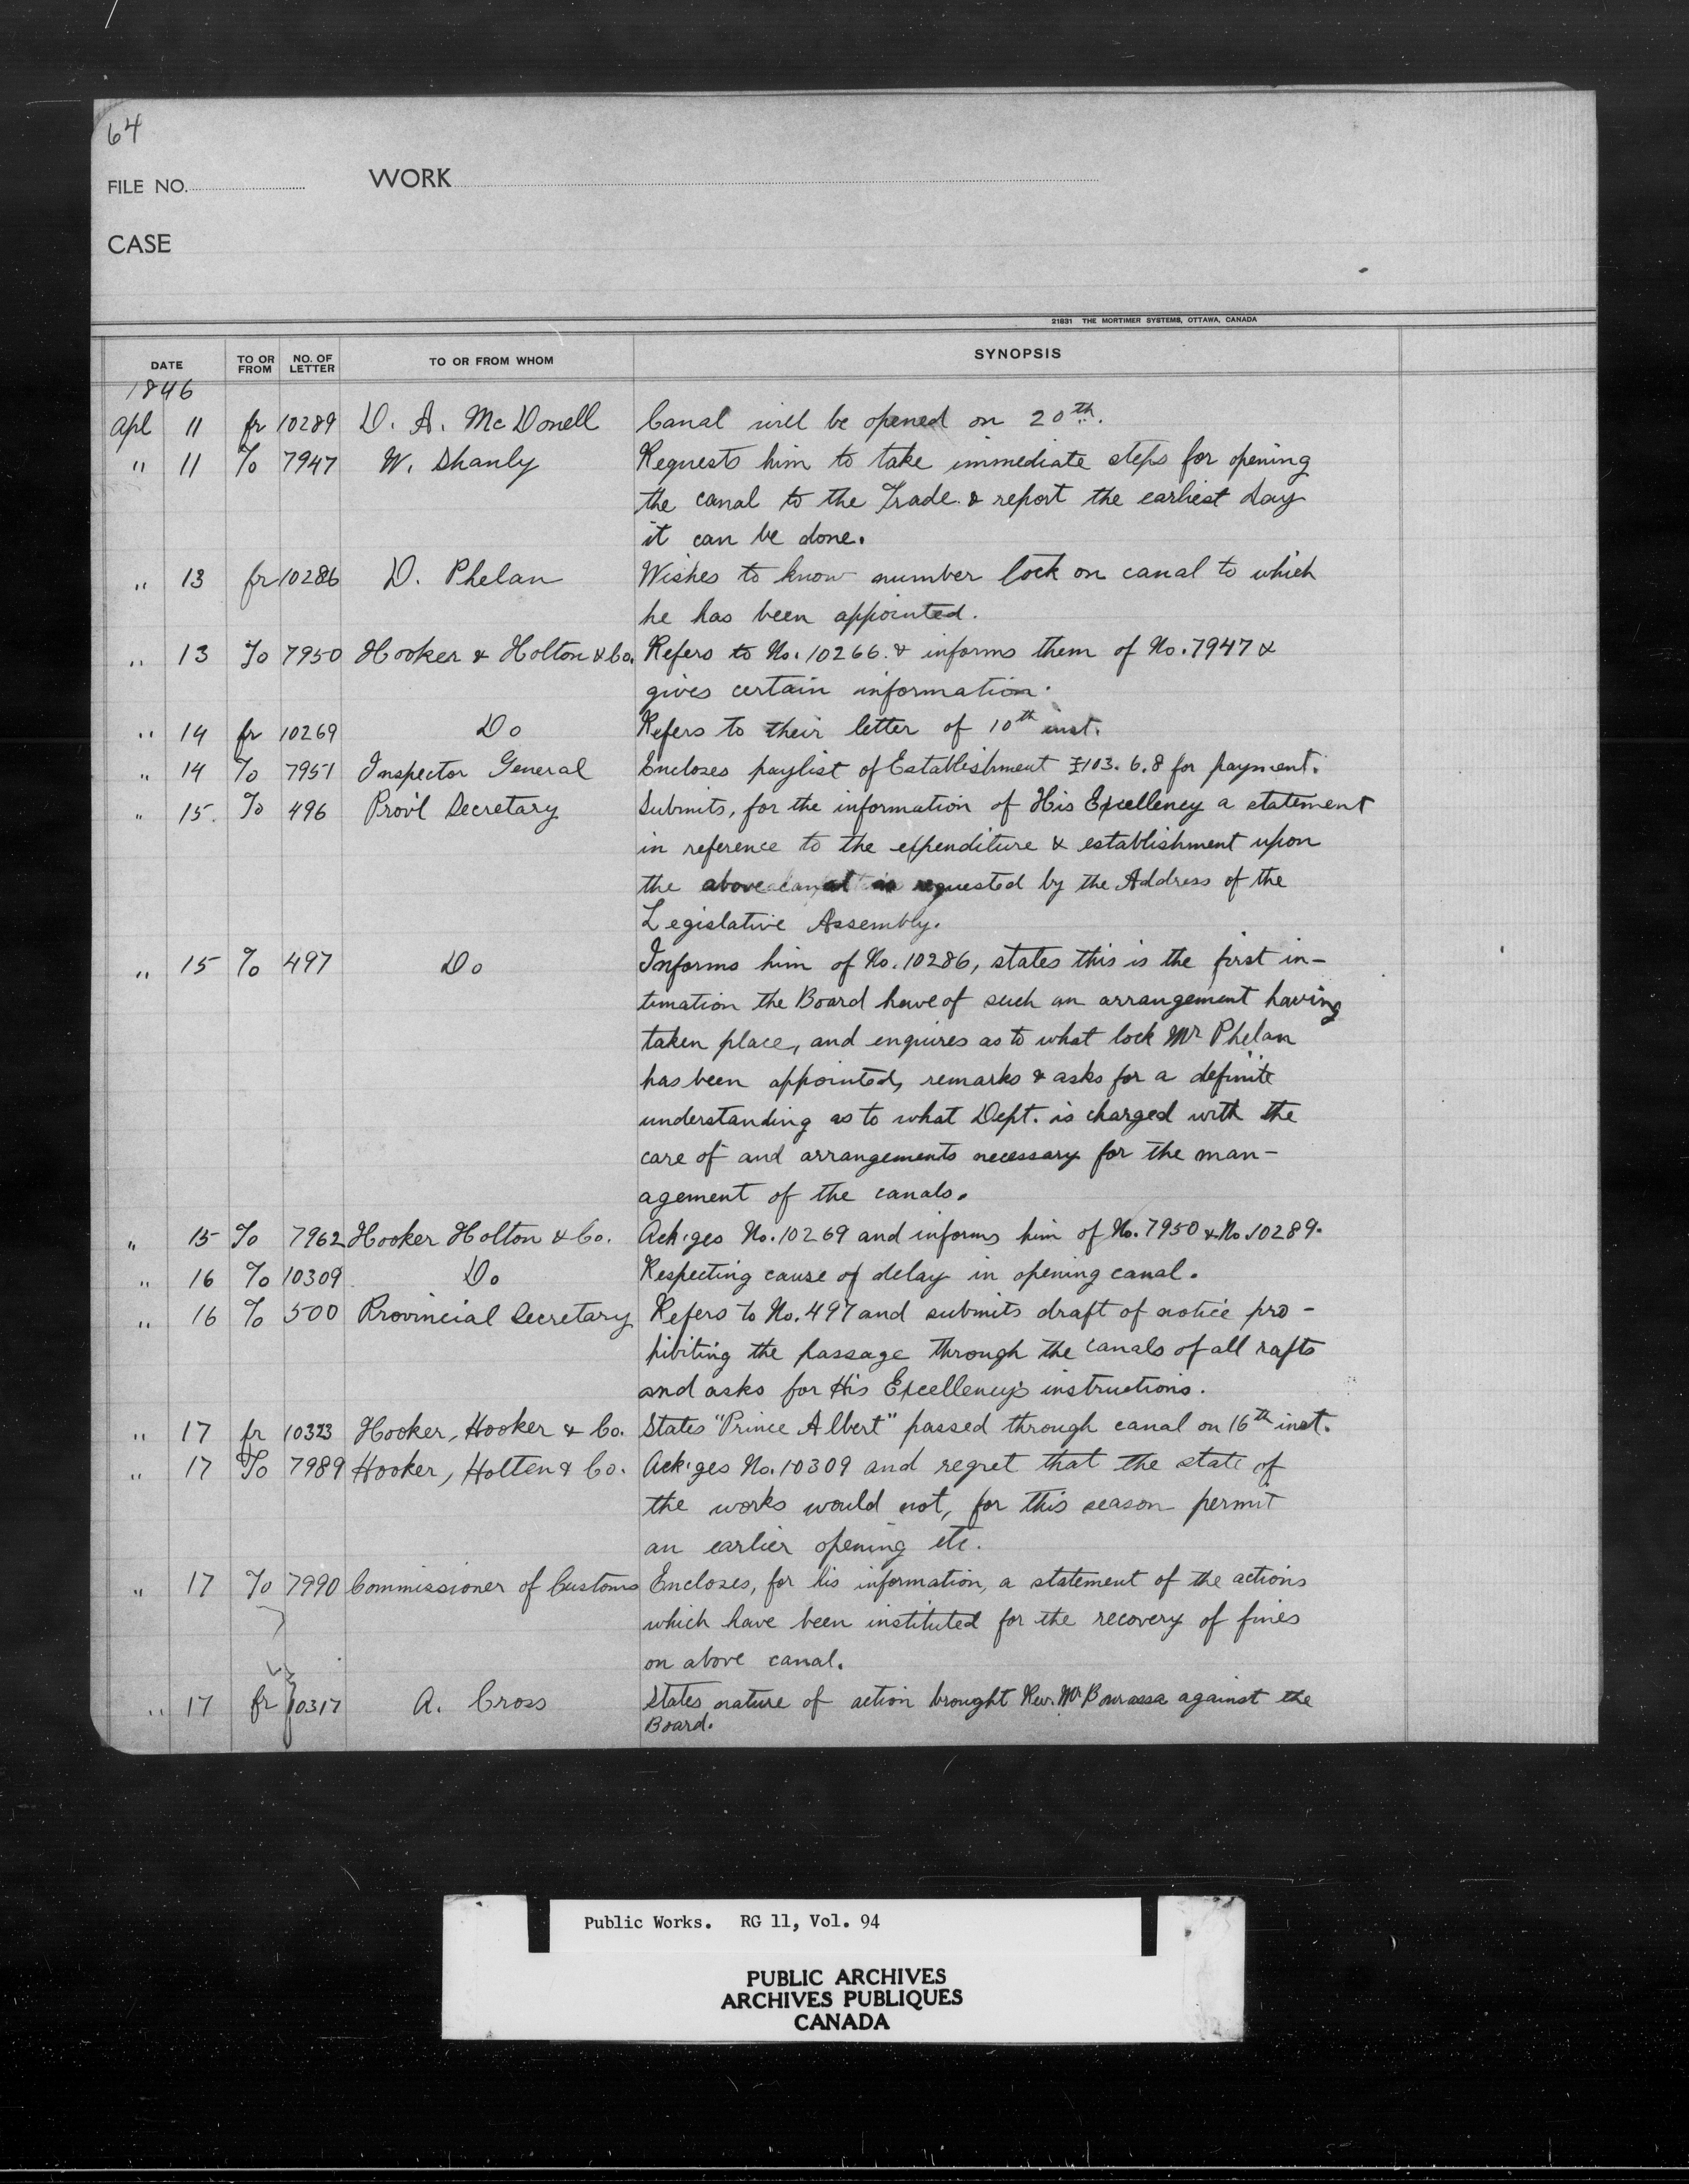 64
FILE NO. WORK
CASE
21831 THE MORTIMER SYSTEMS, OTTAWA, CANADA
DATE TO OR FROM NO. OF LETTER TO OR FROM WHOM SYNOPSIS
1846
Apl 11 fr 10289 D. A. McDonell Canal will be opened on 20th.
" 11 To 7947 W. Shanly Requests him to take immediate steps for opening
the canal to the Trade & report the earliest day
it can be done.
" 13 fr 10286 D. Phelan Wishes to know number lock on canal to which
he has been appointed.
" 13 To 7950 Hooker & Holton & Co. Refers to No. 10266 & informs them of No. 7947 &
gives certain information.
" 14 fr 10269 Do Refers to their letter of 10th inst.
" 14 To 7951 Inspector General Encloses paylist of Establishment £103. 6. 8 for payment.
" 15. To 496 Prov'l Secretary Submits, for the information of His Excellency a statement
in reference to the expenditure & establishment upon
the above canal as requested by the Address of the
Legislative Assembly.
" 15 To 497 Do Informs him of No. 10286, states this is the first in-
timation the Board have of such an arrangement having
taken place, and enquires as to what lock Mr Phelan
has been appointed, remarks & asks for a definite
understanding as to what Dept. is charged with the
care of and arrangements necessary for the man-
agement of the canals.
" 15 To 7962 Hooker Holton & Co. Ack'ges No. 10269 and informs him of No. 7950 & No. 10289.
" 16 To 10309 Do Respecting cause of delay in opening canal.
" 16 To 500 Provincial Secretary Refers to No. 497 and submits draft of notice pro-
hibiting the passage through the canals of all rafts
and asks for His Excellency's instructions.
" 17 fr 10323 Hooker, Hooker & Co. States "Prince Albert" passed through canal on 16th inst.
" 17 To 7989 Hooker, Holten & Co. Ack'ges No. 10309 and regret that the state of
the works would not, for this season permit
an earlier opening etc.
" 17 To 7990 Commissioner of Customs Encloses, for his information, a statement of the actions
which have been instituted for the recovery of fines
on above canal.
" 17 fr 10317 A. Cross States nature of action brought Rev. Mr Bourassa against the
Board.
Public Works. RG 11, Vol. 94
PUBLIC ARCHIVES
ARCHIVES PUBLIQUES
CANADA